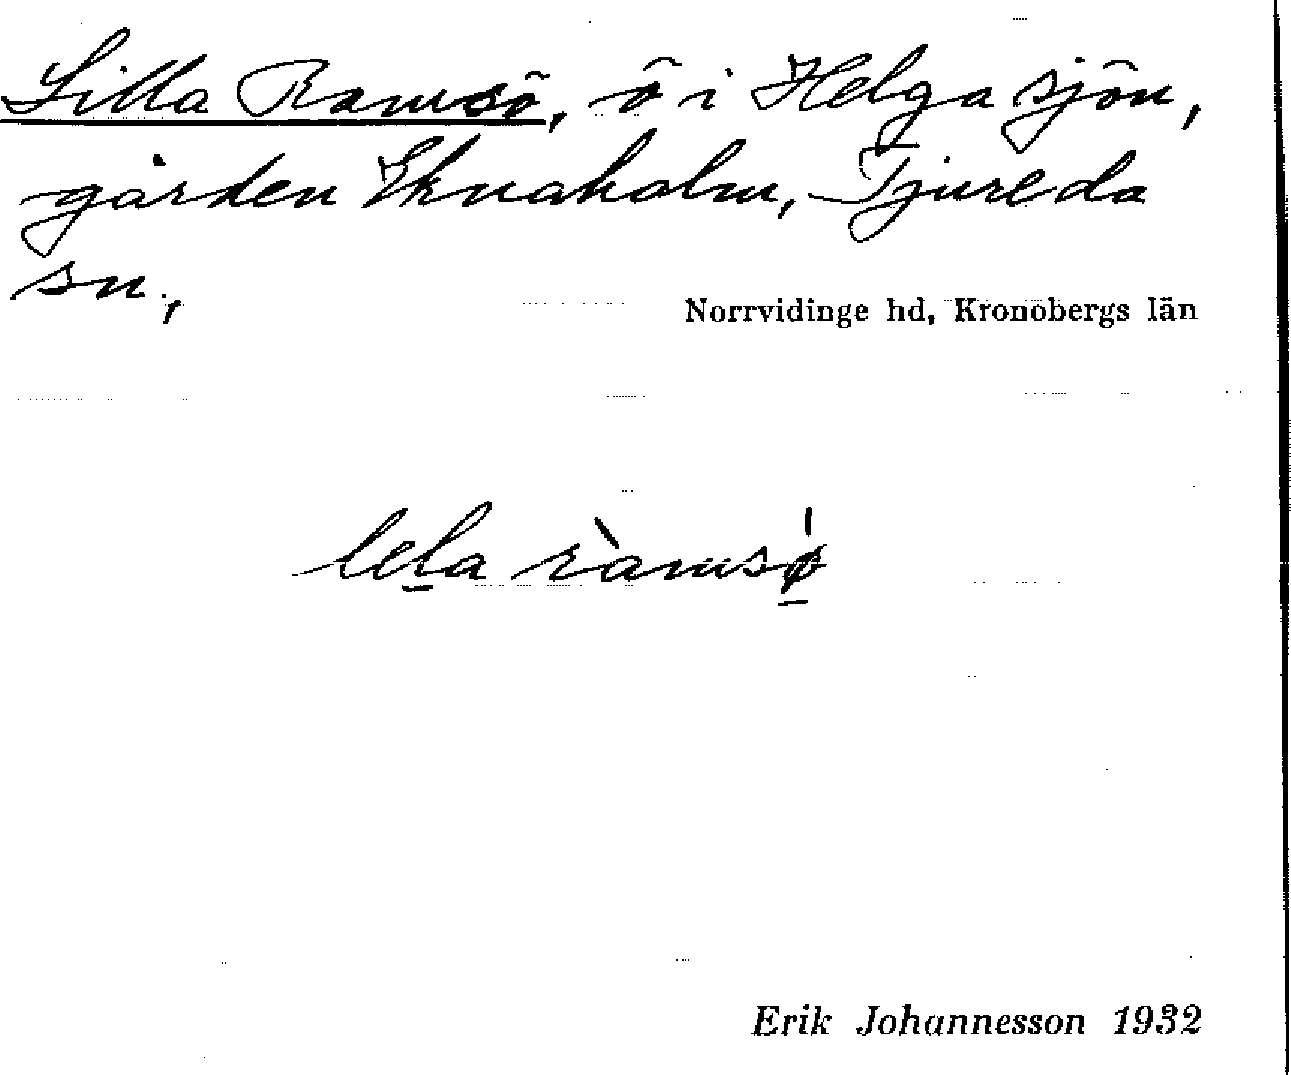 Lilla Ramsö, ö i Helgasjön,
gården Eknaholm, Tjureda
sn,
Norrvidinge hd, Kronobergs län
lela ràmsø̱
Erik Johannesson 1932